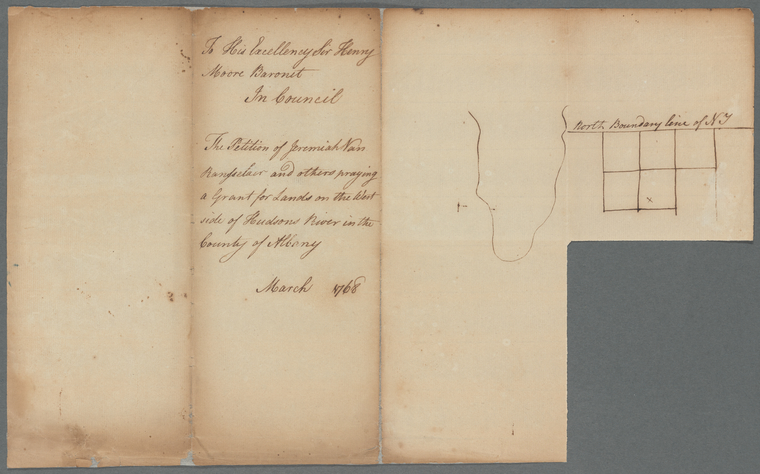 To His Excellency Sir Henry
Moore Baronet
In Council
The Petition of Jeremiah Van
Ransselaer and others praying
a Grant for Lands on the West
side of Hudsons River in the
County of Albany
March 1768
North Boundary line of N J